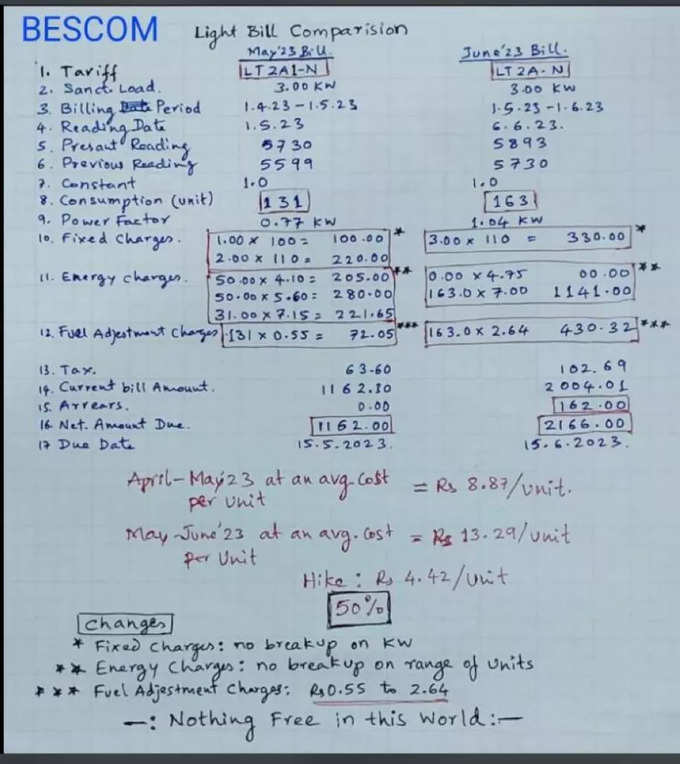 BESCOM Light Bill Comparision
May'23 Bill. June'23 Bill.
1. Tariff LT2A1-N LT2A-N
2. Sanct. Load. 3.00 KW 3.00 KW
3. Billing Period 1.4.23 - 1.5.23 1.5.23 - 1.6.23
4. Reading Date 1.5.23 6.6.23.
5. Presant Reading 5730 5893
6. Previous Reading 5599 5730
7. Constant 1.0 1.0
8. Consumption (unit) 131 163
9. Power Factor 0.77 KW 1.04 KW
10. Fixed Charges. 1.00 x 100 = 100.00 * 3.00 x 110 = 330.00 *
2.00 x 110 = 220.00
11. Energy charges. 50.00 x 4.10 = 205.00 ** 0.00 x 4.75 00.00 **
50.00 x 5.60 = 280.00 163.0 x 7.00 1141.00
31.00 x 7.15 = 221.65
12. Fuel Adjestment Charges 131 x 0.55 = 72.05 *** 163.0 x 2.64 430.32 ***
13. Tax. 63.60 102.69
14. Current bill Amount. 1162.30 2004.01
15. Arrears. 0.00 162.00
16. Net. Amount Due. 1162.00 2166.00
17 Due Date 15.5.2023. 15.6.2023.
April-May'23 at an avg. Cost = Rs 8.87/unit.
per unit
May-June'23 at an avg. Cost = Rs 13.29/unit
per Unit
Hike : Rs 4.42/unit
50%
Changes
* Fixed Charges: no breakup on KW
** Energy Charges: no breakup on range of units
*** Fuel Adjestment Charges: Rs 0.55 to 2.64
—: Nothing Free in this World:—